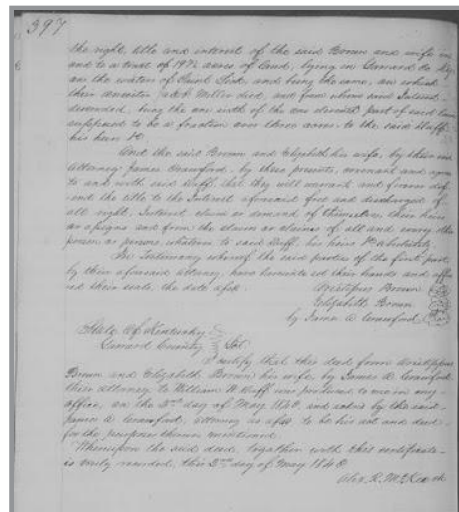 397
the right, title and interest of the said Brown and wife in
and to a tract of 197½ acres of land, lying in Garrard Co Ky
on the waters of Paint Lick and being the same, on which
their ancestor Miller died, and from whom said Interest
descended, being the one sixth of the one eleventh part of said land
supposed to be a fraction over three acres to the said Duff
his heirs
And the said Brown and Elizabeth his wife, by their said
Attorney James Crawford, by these presents, covenant and agree
to and with said Duff, that they will warrant and forever def
end the title to the Interest aforesaid free and discharged of
all right, Interest claim or demand of themselves, their heirs
or assigns and from the claim or claims of all and every other
person or persons whatever to said Duff, his heirs
In Testimony whereof the said parties of the first part
by their aforesaid Attorney, have hereunto set their hands and affix
ed their seals, the date afsd.
Aristippus Brown
Elizabeth Brown
by James A Crawford
State of Kentucky
Garrard County Sct
I certify that this deed from Aristippus
Brown and Elizabeth Brown his wife, by James A. Crawford
their Attorney to William Duff was produced to me in my
office, on the 2nd day of May 1848, and acknd by the said
James A Crawford, Attorney as afsd to be his act and deed
for the purposes therein mentioned
Whereupon the said deed, together with this certificate
is truly recorded, this 2nd day of May 1848
Alex. R. McKee